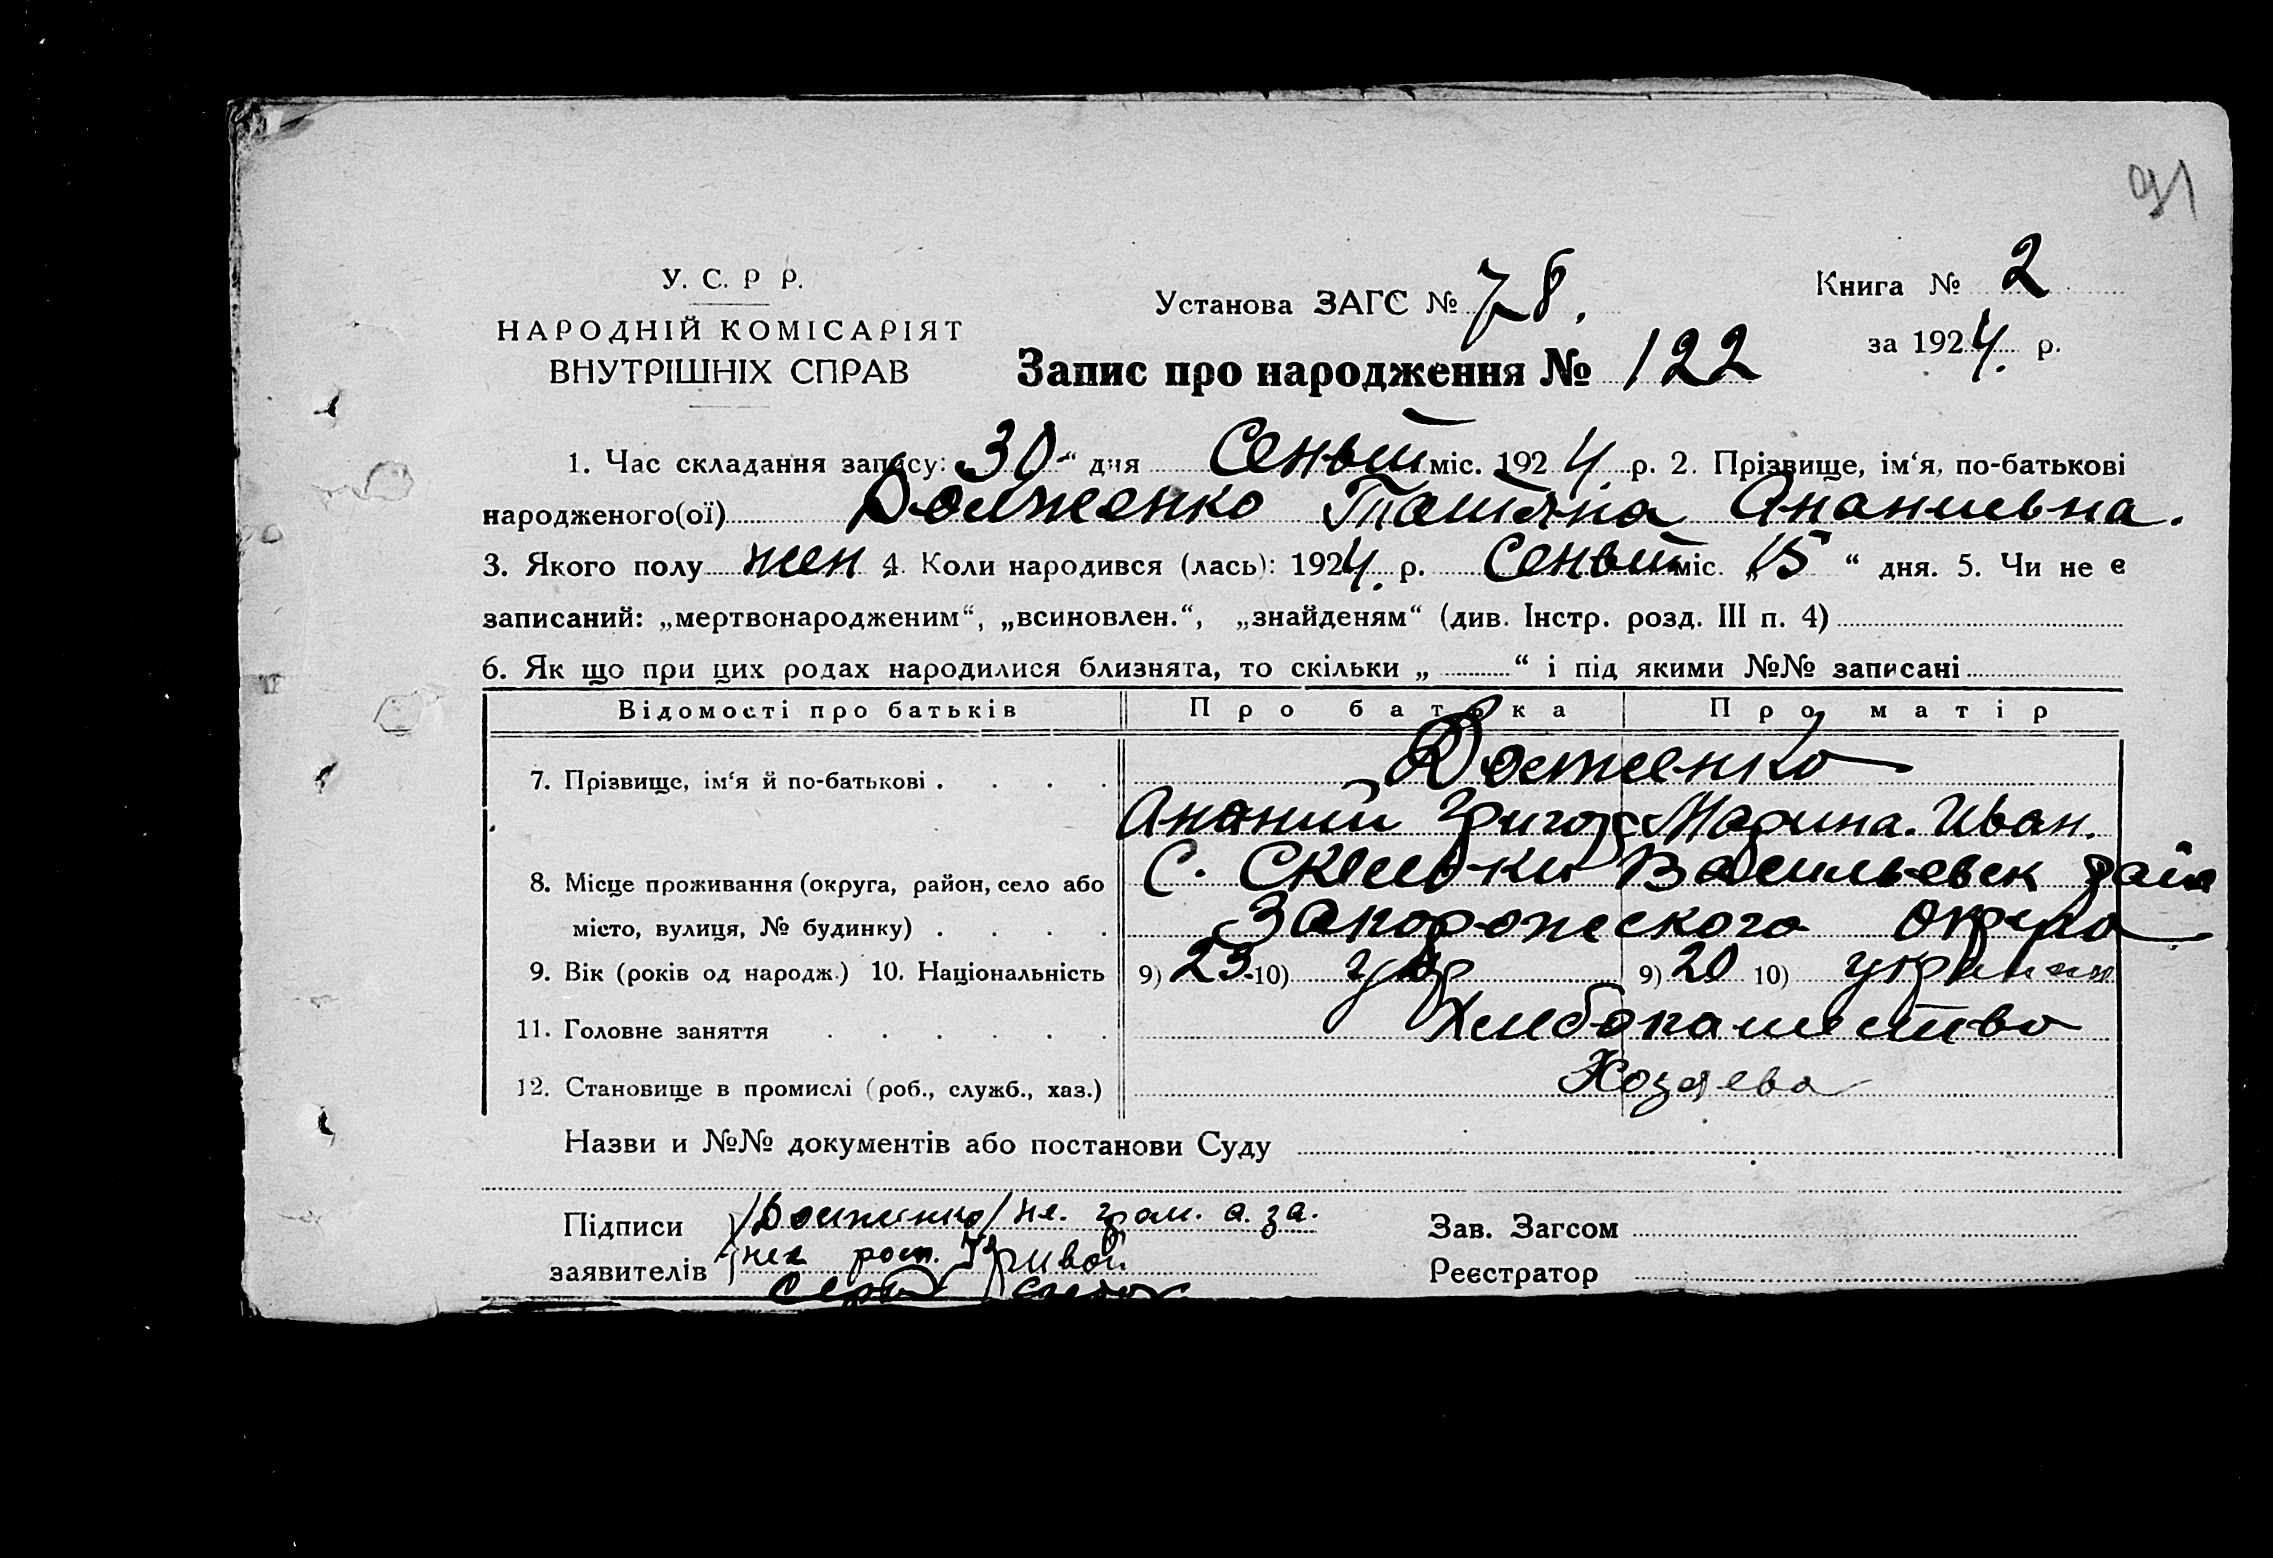 91
У. С. Р Р.
НАРОДНІЙ КОМІСАРІЯТ
ВНУТРІШНІХ СПРАВ
Установа ЗАГС № 78.
Книга № 2
за 1924. р.
Запис про народження № 122
1. Час складання запису: 30 “ дня міс. 1924 р. 2. Прізвище, ім‘я, по-батькові
народженого(ої) Долженко Татьяна Ананиевна.
3. Якого полу жен 4. Коли народився (лась): 1924. р. міс. „ 15 “ дня. 5. Чи не є
записаний: „мертвонародженим“, „всиновлен.“, „знайденям“ (див. Інстр. розд. III п. 4)
6. Як що при цих родах народилися близнята, то скільки „ “ і під якими №№ записані
Відомості про батьків Про батька Про матір
7. Прізвище, ім‘я й по-батькові . . . . Долженко
Ананий Григор Марина. Иван.
8. Місце проживання (округа, район, село або С. Скельки Васильевск райо
місто, вулиця, № будинку) . . . . Запорожеского округа
9. Вік (років од народж.) 10. Національність 9) 23 10) укр 9) 20 10)
11. Головне заняття . . . . . . Хлебопашество
12. Становище в промислі (роб., служб., хаз.) Хозяева
Назви и №№ документів або постанови Суду
Підписи /Долженко/ не. грам. а. за.
заявителів нег росп. Кривой
Зав. Загсом
Реєстратор